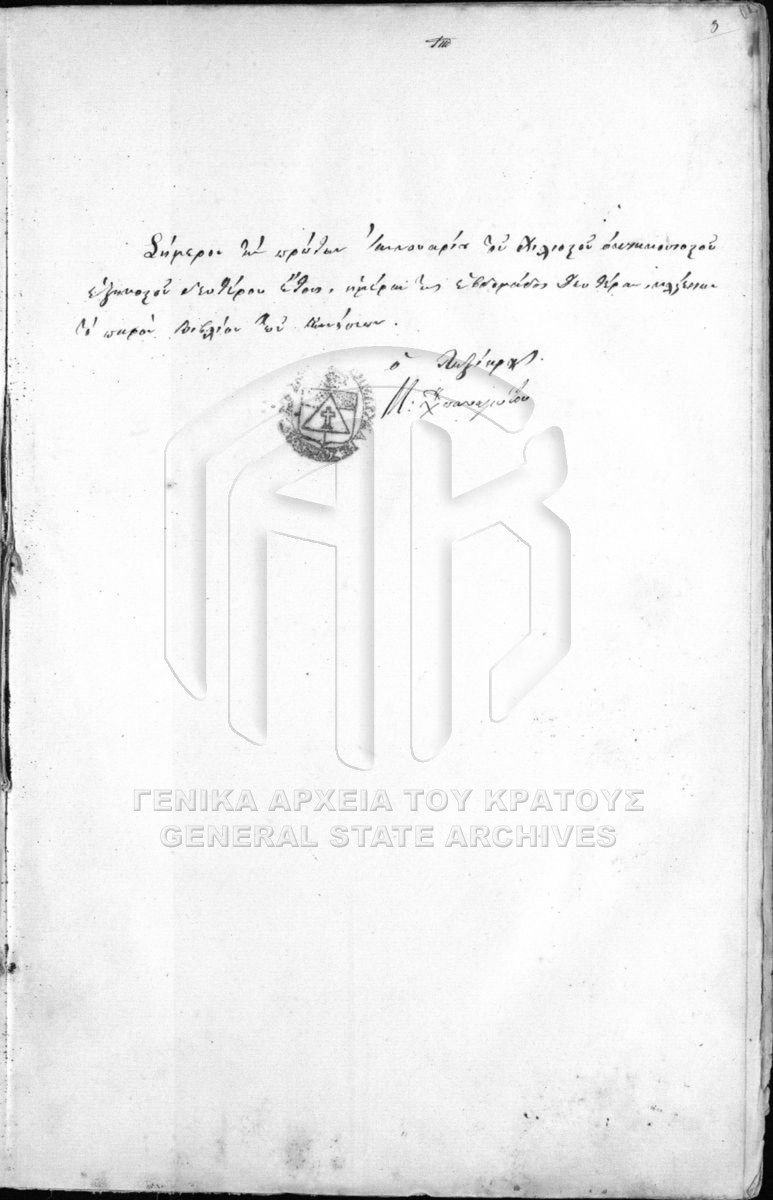 3
Σήμερον τὴν πρώτην Ἰαννουαρίου τοῦ χιλιοστοῦ ὀκτακοσιοστοῦ
ἑξηκοστοῦ δευτέρου ἔτους, ἡμέραν τῆς ἑβδομάδος Δευτέραν,
τὸ παρὸν βιβλίον τῶν
ὁ Ληξίαρχος
ΓΕΝΙΚΑ ΑΡΧΕΙΑ ΤΟΥ ΚΡΑΤΟΥΣ
GENERAL STATE ARCHIVES